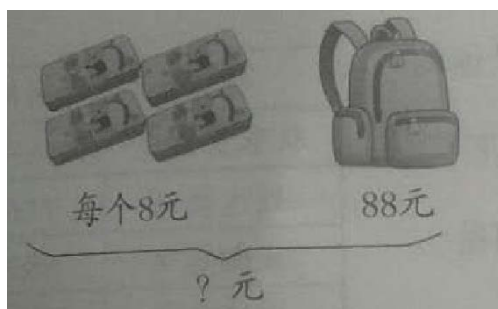 每个8元
88元
? 元